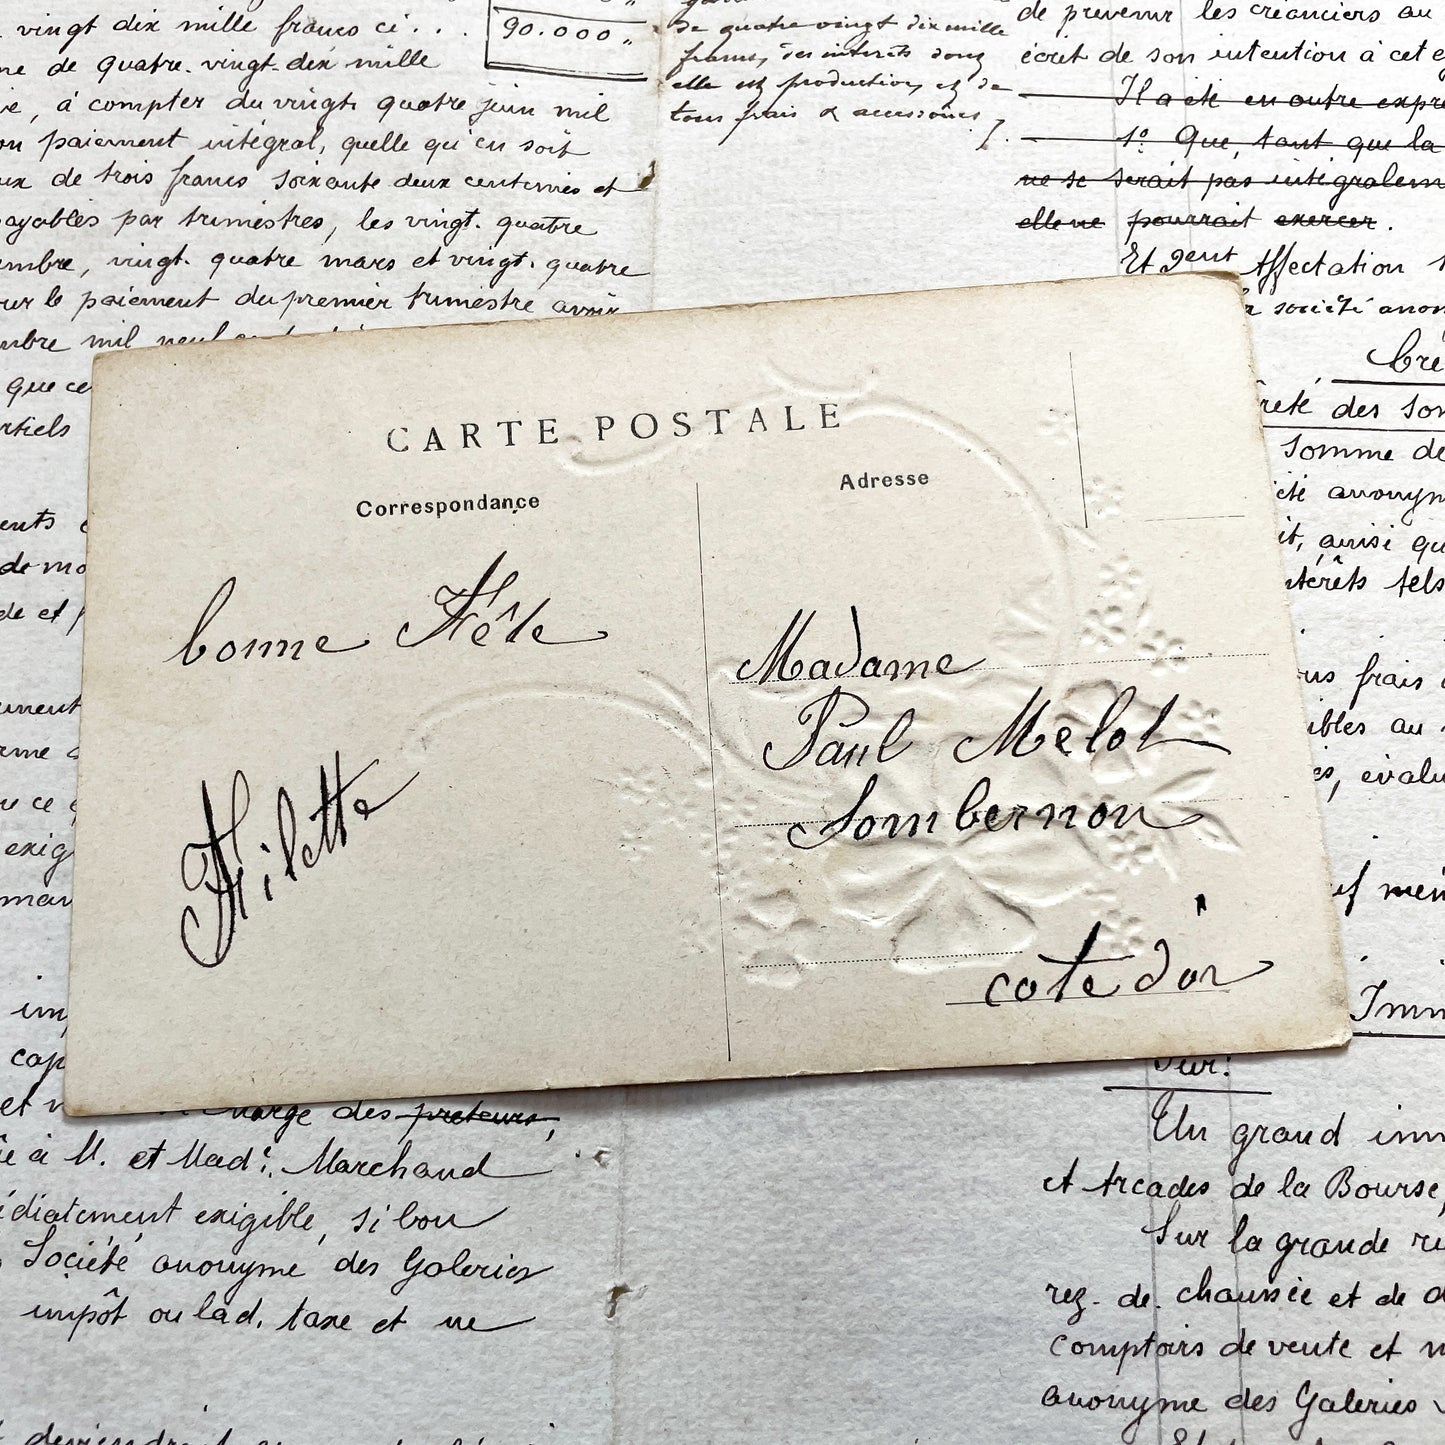 vingt dix mille francs ci . . .
90.000 "
de quatre-vingt-dix mille
, à compter du vingt quatre juin mil
paiement intégral, quelle qu'en soit
de trois francs soixante deux centimes et
payables par trimestres, les vingt-quatre
embre, vingt-quatre mars et vingt-quatre
le paiement du premier trimestre avoir
mbre mil neuf
que ce
rtiels
de quatre vingt dix mille
francs, des intérêts dont
elle est productive, et de
tous frais & accessoires
de prévenir les créanciers au
écrit de son intention à cet e
Il a été en outre expr
1° Que, tant que la
ne se serait pas intégralem
elle ne pourrait exercer.
Et gent Affectation
société anon
Cré
reté des son
Somme de
cité anonym
it, ainsi qu
ntérêts tels
CARTE POSTALE
Correspondance
Adresse
bonne Fête
Hilette
Madame
Paul Melot
Sombernon
cote d'or
ents
de mo
de et
ument
exig
im
cap
frais
ibles au
es, évalu
Imm
Sur:
charge des preteurs,
à M. et Made. Marchand
édiatement exigible, si bon
Société anonyme des Galeries
impôt ou lad. taxe et ne
Un grand imm
et Arcades de la Bourse,
Sur la grande ru
rez-de-chaussée et de d
comptoirs de vente et m
anonyme des Galeries
deviendrait